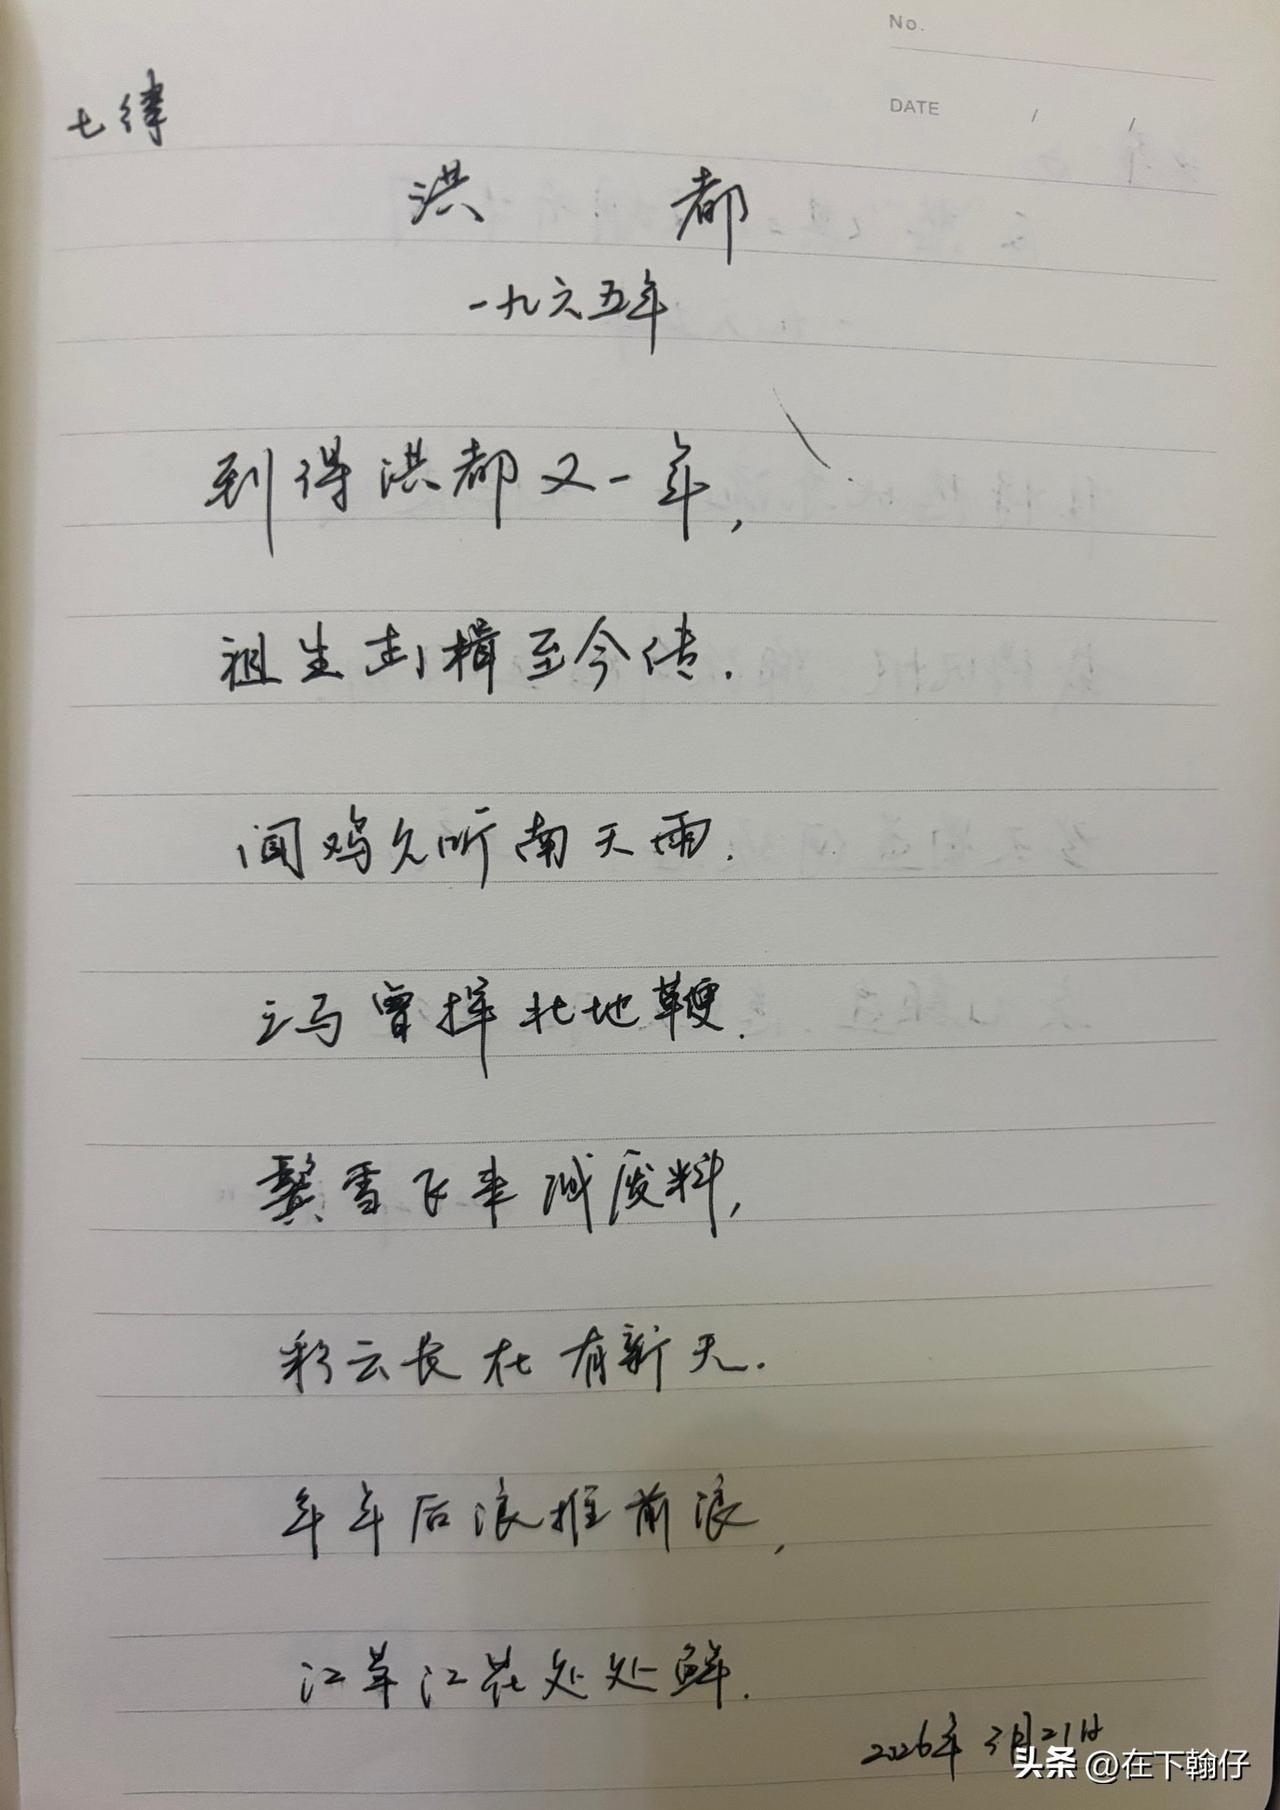 No.
DATE / /
七律
洪 都
一九六五年
到得洪都又一年,
祖生击楫至今传.
闻鸡久听南天雨.
立马曾挥北地鞭.
鬓雪飞来成废料,
彩云长在有新天.
年年后浪推前浪,
江草江花处处鲜.
2026年3月21日
头条 @在下翰仔